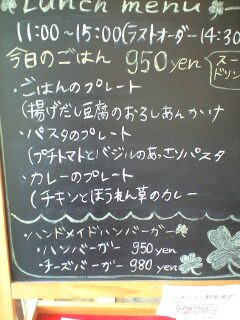 Lunch menu
11:00〜15:00(ラストオーダー14:30
今日のごはん 950yen
スー
ドリン
・ごはんのプレート
(揚げだし豆腐のおろしあんかけ
・パスタのプレート
(プチトマトとバジルのあっさりパスタ
・カレーのプレート
(チキンとほうれん草のカレー
・ハンドメイドハンバーガー
・ハンバーガー 950yen
・チーズバーガー 980yen